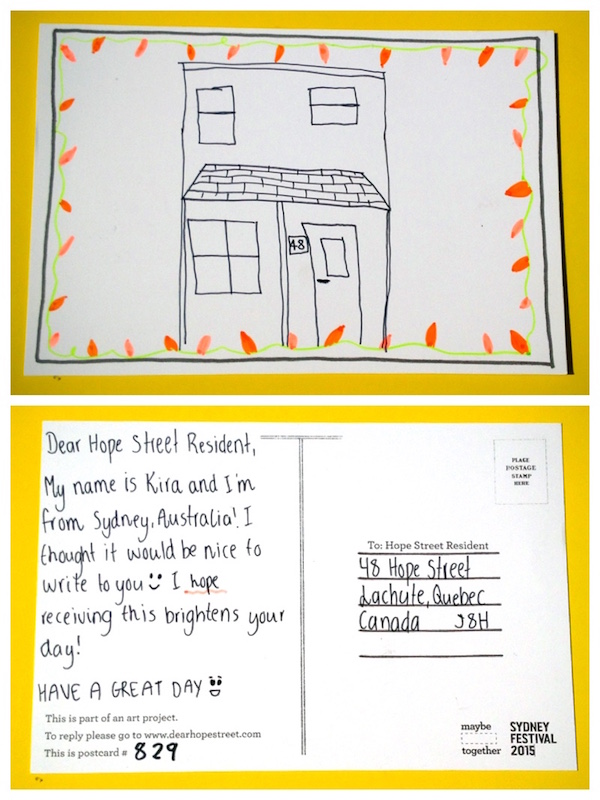 48
Dear Hope Street Resident,
My name is Kira and I'm
from Sydney, Australia! I
thought it would be nice to
write to you I hope
receiving this brightens your
day!
HAVE A GREAT DAY
This is part of an art project.
To reply please go to www.dearhopestreet.com
This is postcard # 829
PLACE
POSTAGE
STAMP
HERE
To: Hope Street Resident
48 Hope Street
Lachute, Quebec
Canada J8H
maybe
together
SYDNEY
FESTIVAL
2015